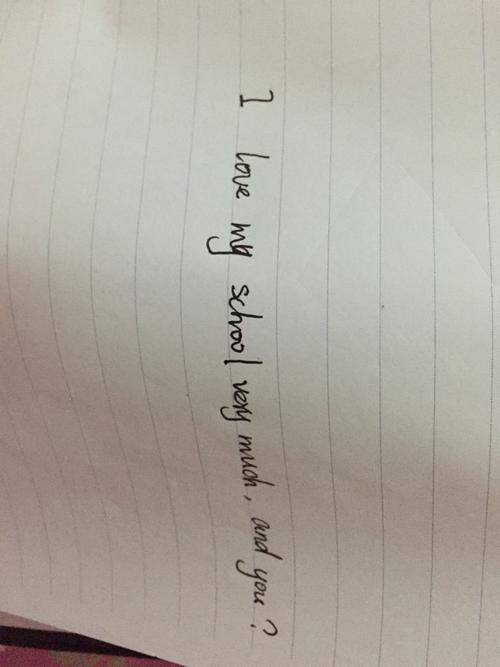 I love my school very much, and you?